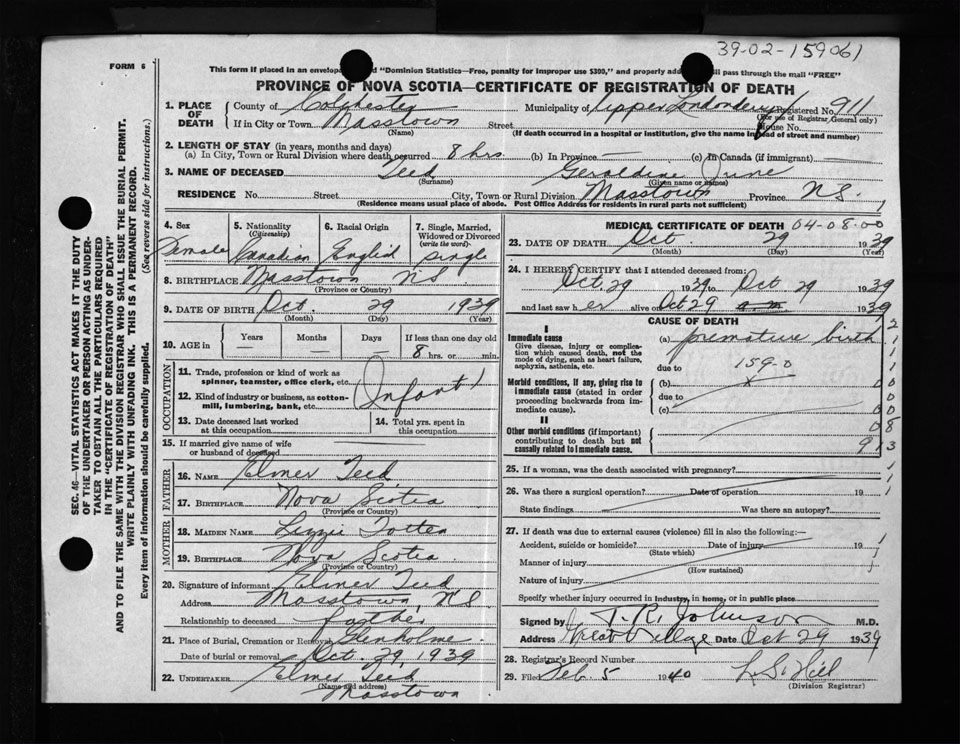 39-02-159061
FORM 6
This form if placed in an envelope "Dominion Statistics—Free, penalty for improper use $300," and properly will pass through the mail "FREE"
PROVINCE OF NOVA SCOTIA—CERTIFICATE OF REGISTRATION OF DEATH
1. PLACE OF DEATH County of Colchester Municipality of Upper Londonderry Registered No. 911
(For use of Registrar General only)
If in City or Town Masstown Street House No.
(Name) (If death occurred in a hospital or institution, give the name instead of street and number)
2. LENGTH OF STAY (in years, months and days)
(a) In City, Town or Rural Division where death occurred 8 hrs (b) In Province — (c) In Canada (if immigrant)
3. NAME OF DECEASED Teed Geraldine June
(Surname) (Given name or names)
RESIDENCE No. Street City, Town or Rural Division Masstown Province N.S.
(Residence means usual place of abode. Post Office Address for residents in rural parts not sufficient)
4. Sex Female
5. Nationality (Citizenship) Canadian
6. Racial Origin English
7. Single, Married, Widowed or Divorced (write the word) single
8. BIRTHPLACE Masstown NS.
(Province or Country)
9. DATE OF BIRTH Oct. 29 1939
(Month) (Day) (Year)
10. AGE in Years — Months — Days — If less than one day old 8 hrs. or min.
OCCUPATION
11. Trade, profession or kind of work as spinner, teamster, office clerk, etc.
12. Kind of industry or business, as cotton-mill, lumbering, bank, etc. (Infant)
13. Date deceased last worked at this occupation
14. Total yrs. spent in this occupation
15. If married give name of wife or husband of deceased
FATHER
16. Name Elmer Teed
17. Birthplace Nova Scotia
(Province or Country)
MOTHER
18. Maiden Name Lizzie Totten
19. Birthplace Nova Scotia
(Province or Country)
20. Signature of informant Elmer Teed
Address Masstown, N.S.
Relationship to deceased father
21. Place of Burial, Cremation or Removal Glenholme
Date of burial or removal Oct. 29, 1939
22. Undertaker Elmer Teed
(Name and address)
Masstown
MEDICAL CERTIFICATE OF DEATH 04-08-00
23. DATE OF DEATH Oct. 29 1939
(Month) (Day) (Year)
24. I HEREBY CERTIFY that I attended deceased from:
Oct. 29 1939 to Oct 29 1939
and last saw her alive on Oct 29 a.m. 1939
CAUSE OF DEATH
I
Immediate cause
Give disease, injury or complication which caused death, not the mode of dying, such as heart failure, asphyxia, asthenia, etc.
(a) premature birth
due to 159-0
Morbid conditions, if any, giving rise to immediate cause (stated in order proceeding backwards from immediate cause).
(b)
due to
(c)
II
Other morbid conditions (if important) contributing to death but not causally related to immediate cause.
2
1
1
1
0
0
0
08
9 13
25. If a woman, was the death associated with pregnancy?
26. Was there a surgical operation? Date of operation 19
State findings Was there an autopsy?
27. If death was due to external causes (violence) fill in also the following:—
Accident, suicide or homicide? Date of injury 19
(State which)
Manner of injury
(How sustained)
Nature of injury
Specify whether injury occurred in industry, in home, or in public place
Signed by T. R. Johnson M.D.
Address Great Village Date Oct 29 1939
28. Registrar's Record Number
29. Filed Feb. 5 1940 L. S. Hill
(Division Registrar)
SEC. 46—VITAL STATISTICS ACT MAKES IT THE DUTY
OF THE UNDERTAKER OR PERSON ACTING AS UNDERTAKER TO OBTAIN ALL THE PARTICULARS REQUIRED
IN THE "CERTIFICATE OF REGISTRATION OF DEATH"
AND TO FILE THE SAME WITH THE DIVISION REGISTRAR WHO SHALL ISSUE THE BURIAL PERMIT.
WRITE PLAINLY WITH UNFADING INK. THIS IS A PERMANENT RECORD.
Every item of information should be carefully supplied. (See reverse side for instructions.)